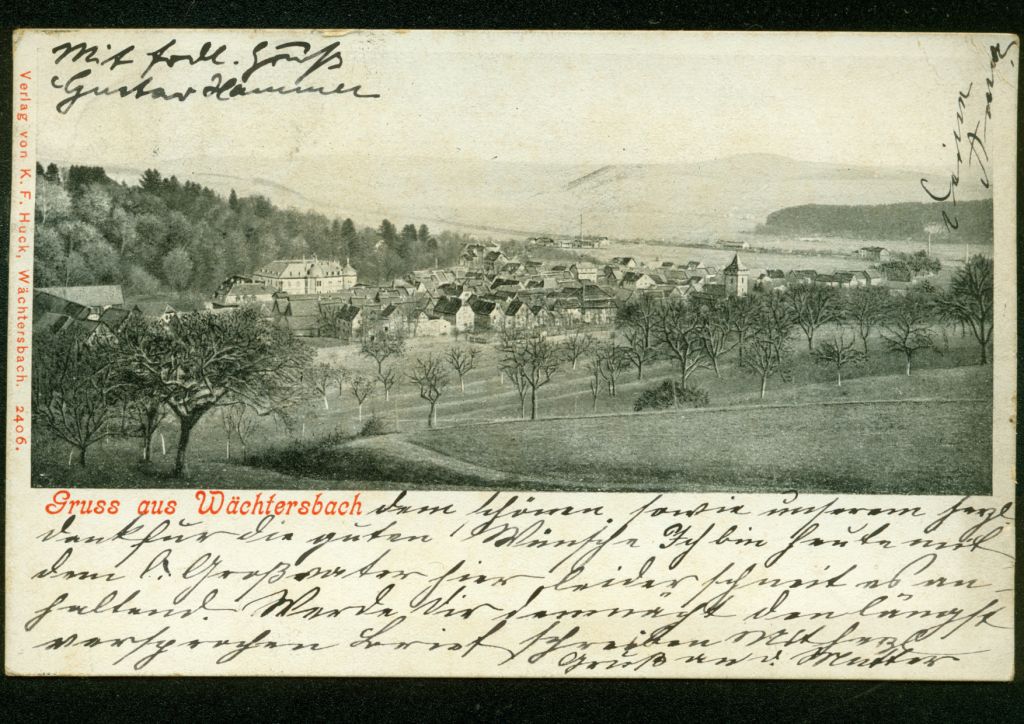 Mit frdl. Gruß
Gustav Hammer
Verlag von K. F. Huck, Wächtersbach. 2406.
Gruss aus Wächtersbach dem schönen, sowie unserem herzl
dank für die guten Wünsche Ich bin heute mit
dem l. Großvater hier leider schneit es an-
haltend. Werde Dir demnächst den längst
versprochen Brief schreiben Mit herzl
Gruß an d. Mutter